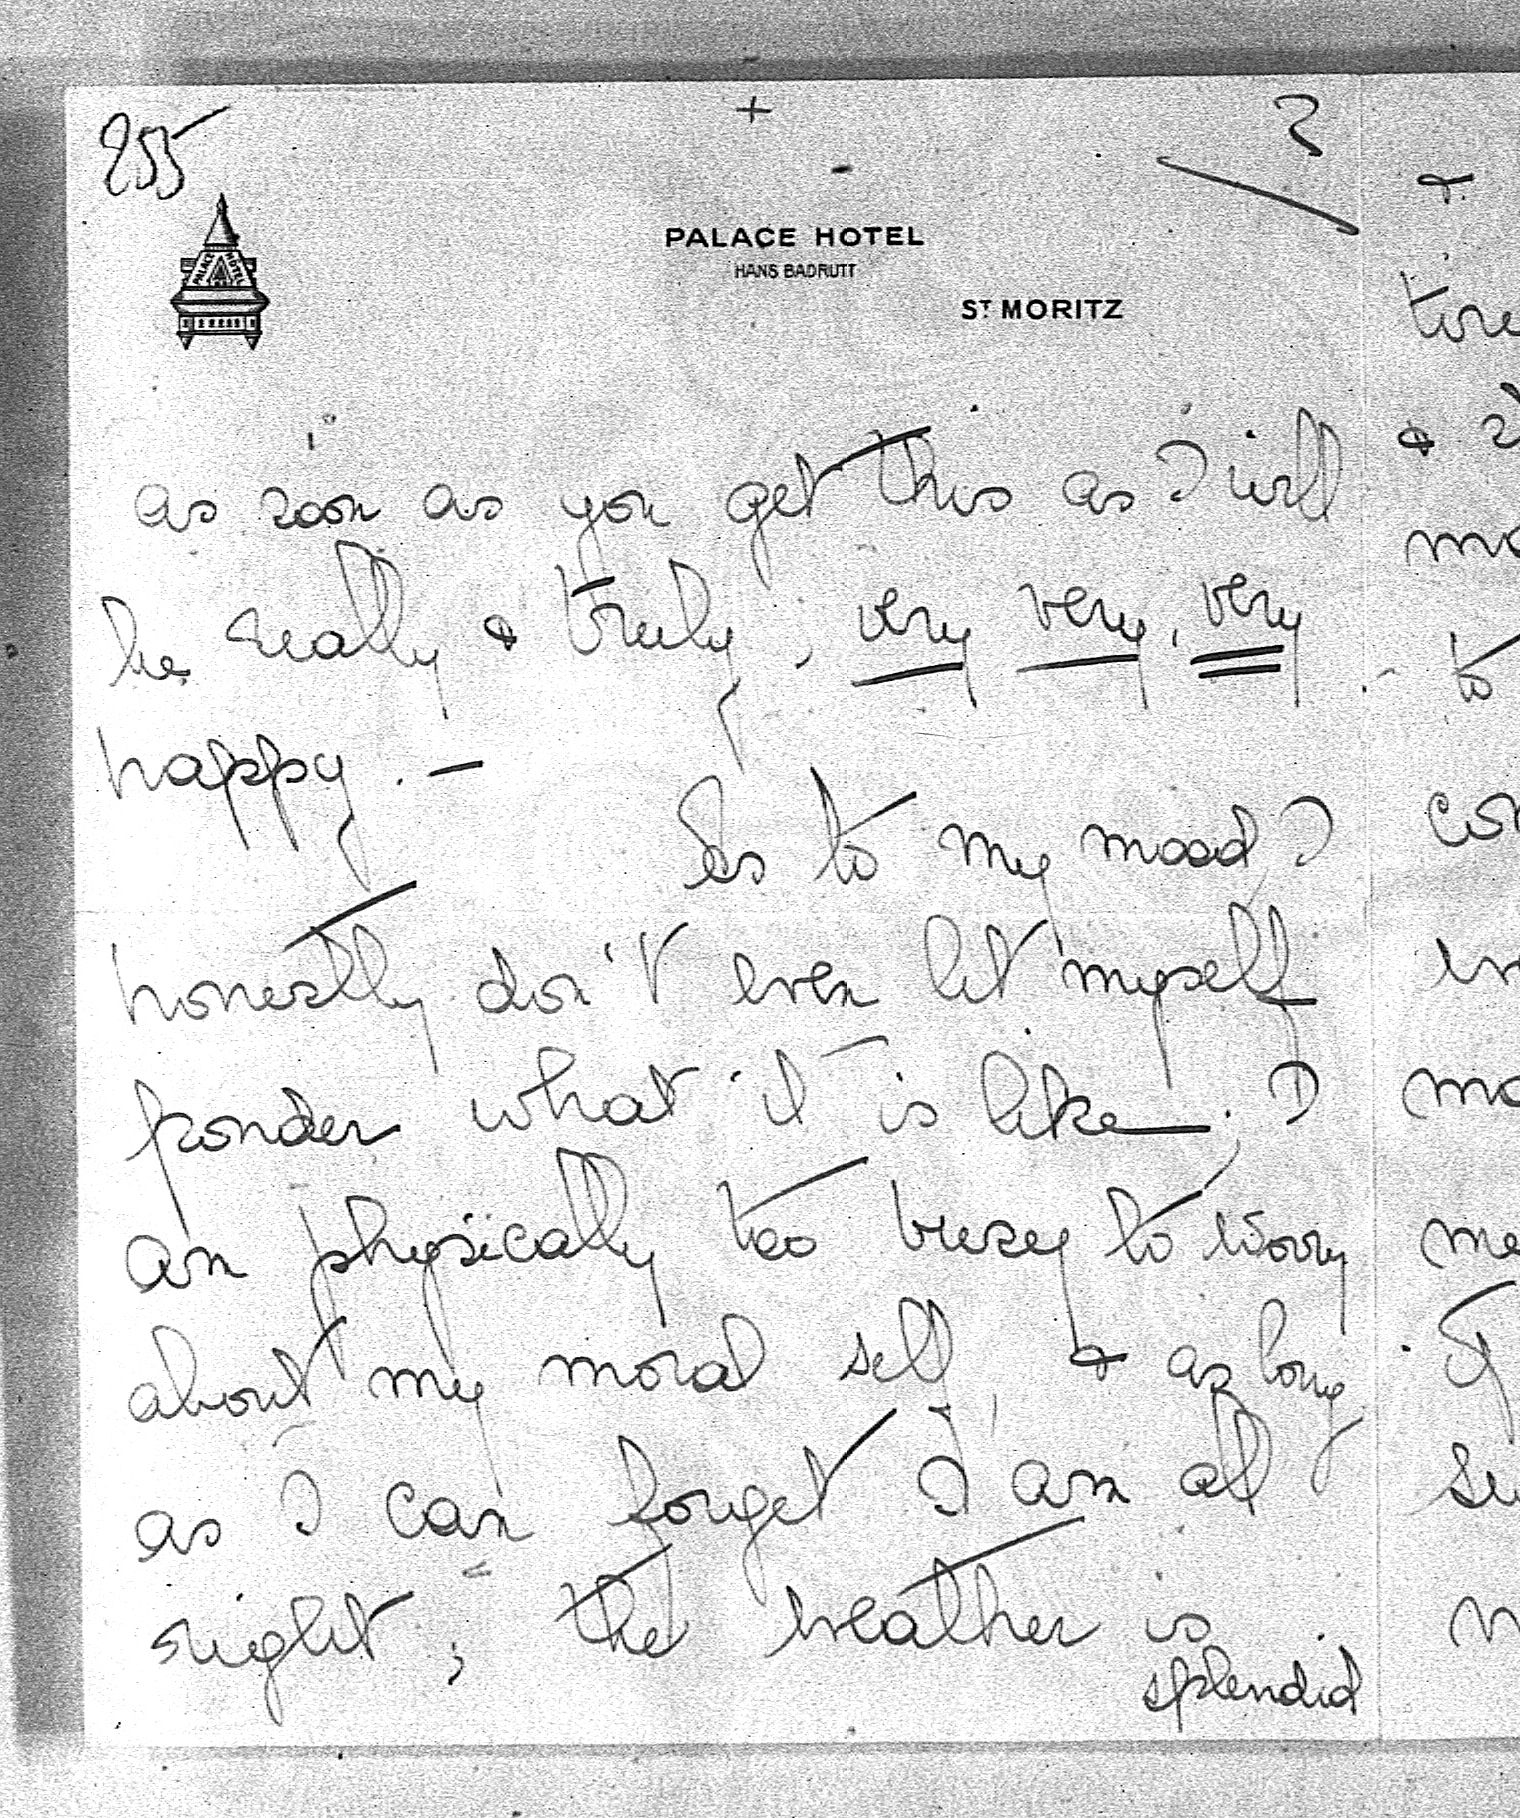 255
+
2
PALACE HOTEL
PALACE HOTEL
HANS BADRUTT
ST MORITZ
as soon as you get this as I will
be really & truly, very very, very
happy. —
As to my mood I
honestly don't even let myself
ponder what it is like; I
am physically too busy to worry
about my moral self, & as long
as I can forget I am all
right; the weather is
splendid
&
to